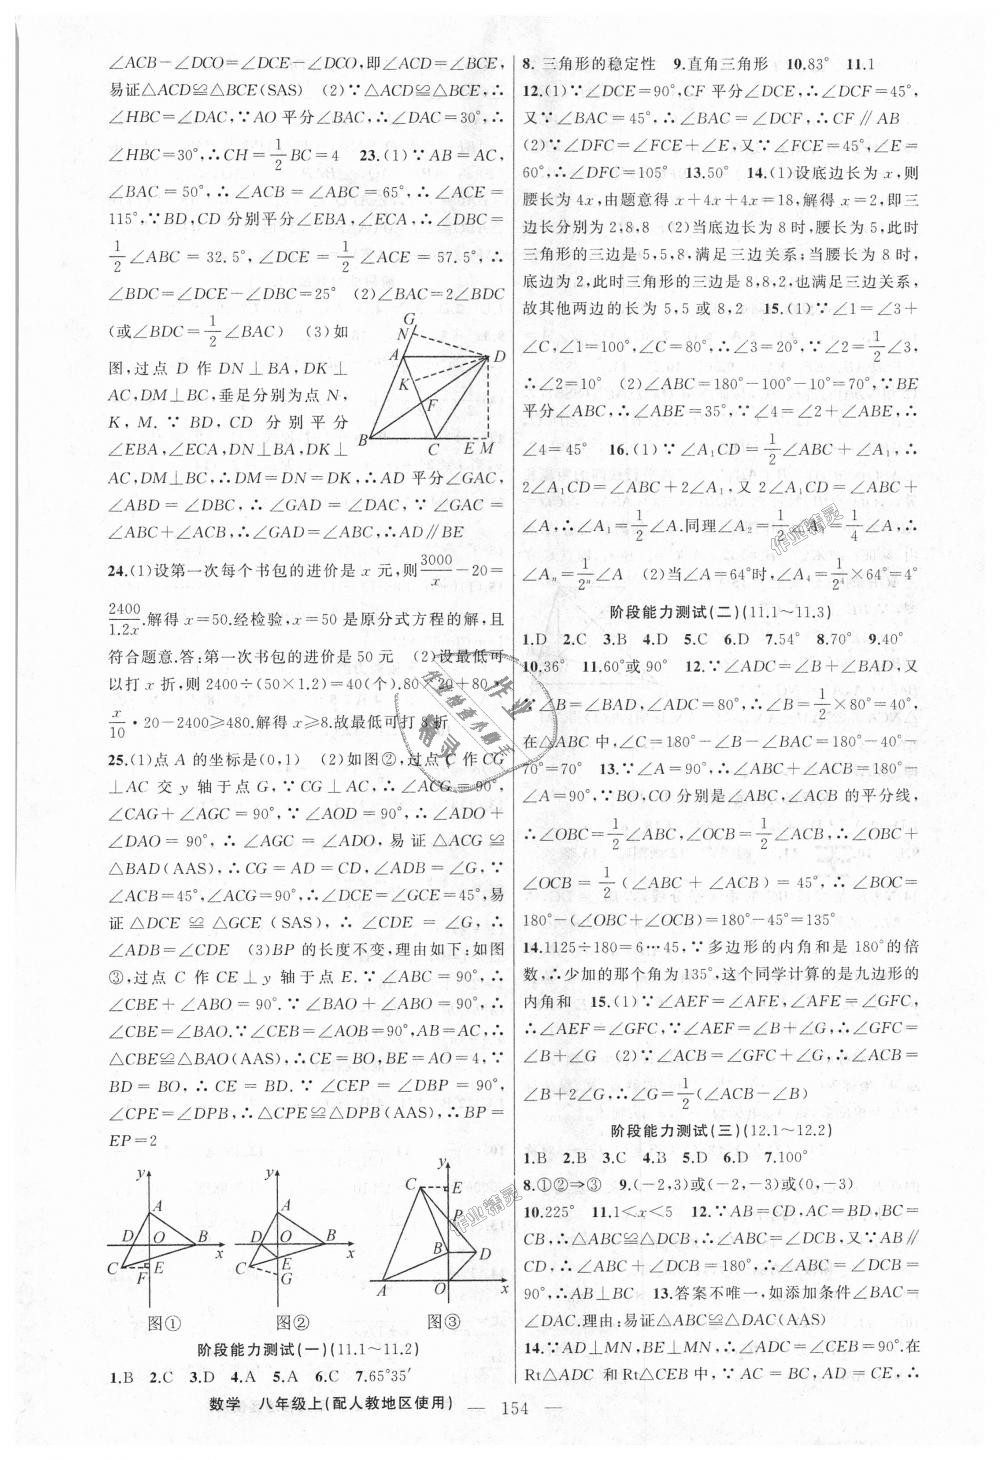 ∠ACB－∠DCO=∠DCE－∠DCO,即∠ACD=∠BCE,
易证△ACD≌△BCE(SAS)　(2)∵△ACD≌△BCE,∴
∠HBC=∠DAC,∵AO平分∠BAC,∴∠DAC=30°,∴
∠HBC=30°,∴CH=1/2 BC=4　23.(1)∵AB=AC,
∠BAC=50°,∴∠ACB=∠ABC=65°,∴∠ACE=
115°,∵BD,CD分别平分∠EBA,∠ECA,∴∠DBC=
1/2∠ABC=32.5°,∠DCE=1/2∠ACE=57.5°,∴
∠BDC=∠DCE－∠DBC=25°　(2)∠BAC=2∠BDC
(或∠BDC=1/2∠BAC)　(3)如
图,过点D作DN⊥BA,DK⊥
AC,DM⊥BC,垂足分别为点N,
K,M.∵BD,CD分别平分
∠EBA,∠ECA,DN⊥BA,DK⊥
AC,DM⊥BC,∴DM=DN=DK,∴AD平分∠GAC,
∠ABD=∠DBC,∴∠GAD=∠DAC,∵∠GAC=
∠ABC+∠ACB,∴∠GAD=∠ABC,∴AD∥BE
G
N
A
D
K
F
B
C
E
M
24.(1)设第一次每个书包的进价是x元,则3000/x－20=
2400/1.2x.解得x=50.经检验,x=50是原分式方程的解,且
符合题意.答:第一次书包的进价是50元　(2)设最低可
以打x折,则2400÷(50×1.2)=40(个).80×20+80×
x/10·20－2400≥480.解得x≥8.故最低可打8折
25.(1)点A的坐标是(0,1)　(2)如图②,过点C作CG
⊥AC交y轴于点G,∵CG⊥AC,∴∠ACG=90°,
∠CAG+∠AGC=90°,∵∠AOD=90°,∴∠ADO+
∠DAO=90°,∴∠AGC=∠ADO,易证△ACG≌
△BAD(AAS),∴CG=AD=CD,∠ADB=∠G,∵
∠ACB=45°,∠ACG=90°,∴∠DCE=∠GCE=45°,易
证△DCE≌△GCE(SAS),∴∠CDE=∠G,∴
∠ADB=∠CDE　(3)BP的长度不变,理由如下:如图
③,过点C作CE⊥y轴于点E.∵∠ABC=90°,∴
∠CBE+∠ABO=90°.∵∠BAO+∠ABO=90°,∴
∠CBE=∠BAO.∵∠CEB=∠AOB=90°,AB=AC,∴
△CBE≌△BAO(AAS),∴CE=BO,BE=AO=4,∵
BD=BO,∴CE=BD.∵∠CEP=∠DBP=90°,
∠CPE=∠DPB,∴△CPE≌△DPB(AAS),∴BP=
EP=2
y
A
D O B
x
C
F E
图①
y
A
D O B
x
C E
G
图②
y
C E
P
B D
A O x
图③
阶段能力测试(一)(11.1～11.2)
1.B　2.C　3.D　4.A　5.A　6.C　7.65°35′
8.三角形的稳定性　9.直角三角形　10.83°　11.1
12.(1)∵∠DCE=90°,CF平分∠DCE,∴∠DCF=45°,
又∵∠BAC=45°,∴∠BAC=∠DCF,∴CF∥AB
(2)∵∠DFC=∠FCE+∠E,又∵∠FCE=45°,∠E=
60°,∴∠DFC=105°　13.50°　14.(1)设底边长为x,则
腰长为4x,由题意得x+4x+4x=18,解得x=2,即三
边长分别为2,8,8　(2)当底边长为8时,腰长为5,此时
三角形的三边是5,5,8,满足三边关系;当腰长为8时,
底边为2,此时三角形的三边是8,8,2,也满足三边关系,
故其他两边的长为5,5或8,2　15.(1)∵∠1=∠3+
∠C,∠1=100°,∠C=80°,∴∠3=20°,∵∠2=1/2∠3,
∴∠2=10°　(2)∠ABC=180°－100°－10°=70°,∵BE
平分∠ABC,∴∠ABE=35°,∵∠4=∠2+∠ABE,∴
∠4=45°　16.(1)∵∠A₁CD=1/2∠ABC+∠A₁,∴
2∠A₁CD=∠ABC+2∠A₁,又2∠A₁CD=∠ABC+
∠A,∴∠A₁=1/2∠A.同理∠A₂=1/2∠A₁=1/4∠A,∴
∠Aₙ=1/2ⁿ∠A　(2)当∠A=64°时,∠A₄=1/2⁴×64°=4°
阶段能力测试(二)(11.1～11.3)
1.D　2.C　3.B　4.D　5.C　6.D　7.54°　8.70°　9.40°
10.36°　11.60°或90°　12.∵∠ADC=∠B+∠BAD,又
∵∠B=∠BAD,∠ADC=80°,∴∠B=1/2×80°=40°,
在△ABC中,∠C=180°－∠B－∠BAC=180°－40°－
70°=70°　13.∵∠A=90°,∴∠ABC+∠ACB=180°－
∠A=90°,∵BO,CO分别是∠ABC,∠ACB的平分线,
∴∠OBC=1/2∠ABC,∠OCB=1/2∠ACB,∴∠OBC+
∠OCB=1/2(∠ABC+∠ACB)=45°,∴∠BOC=
180°－(∠OBC+∠OCB)=180°－45°=135°
14.1125÷180=6…45,∵多边形的内角和是180°的倍
数,∴少加的那个角为135°,这个同学计算的是九边形的
内角和　15.(1)∵∠AEF=∠AFE,∠AFE=∠GFC,
∴∠AEF=∠GFC,∵∠AEF=∠B+∠G,∴∠GFC=
∠B+∠G　(2)∵∠ACB=∠GFC+∠G,∴∠ACB=
∠B+2∠G,∴∠G=1/2(∠ACB－∠B)
阶段能力测试(三)(12.1～12.2)
1.B　2.B　3.C　4.B　5.D　6.D　7.100°
8.①②⇒③　9.(－2,3)或(－2,－3)或(0,－3)
10.225°　11.1＜x＜5　12.∵AB=CD,AC=BD,BC=
CB,∴△ABC≌△DCB,∴∠ABC=∠DCB,又∵AB∥
CD,∴∠ABC+∠DCB=180°,∴∠ABC=∠DCB=
90°,∴AB⊥BC　13.答案不唯一,如添加条件∠BAC=
∠DAC.理由:易证△ABC≌△DAC(AAS)
14.∵AD⊥MN,BE⊥MN,∴∠ADC=∠CEB=90°.在
Rt△ADC和Rt△CEB中,∵AC=BC,AD=CE,∴
数学　八年级上(配人教地区使用)　— 154 —
作业精灵
作业精灵
作业
作业检查小助手
精灵